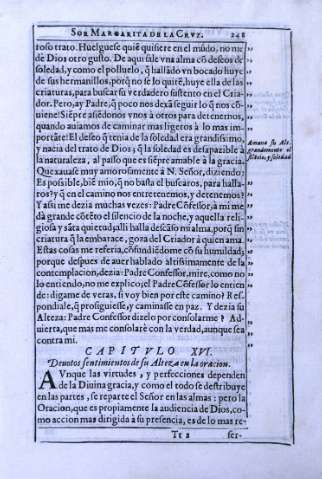 SOR MARGARITA DE LA CRVZ. 248
roso trato. Huelguese quiē quisere en el mũdo, no me
dè Dios otro gusto. De aqui sale vna alma cõ deseos de
soledad, y como el polluelo, q̃ hallado vn bocado huye
de sus hermanillos, porq̃ no se lo quitē, huye ella de las
criaturas, para buscar su verdadero sustento en el Cria-
dor. Pero, ay Padre, q̃ poco nos dexã seguir lo q̃ nos cõ-
uiene! Siēpre asiēdonos vnos à otros para detenernos,
quando auiamos de caminar mas ligeros à lo mas im-
portãte! El deseo q̃ tenia de la soledad era grandisimo,
y nacia del trato de Dios; q̃ la soledad es desapazible à
la naturaleza, al passo que es siēpre amable à la gracia.
Quexauase muy amorosamente à N. Señor, diziendo:
Es posible, biē mio, q̃ no basta el buscaros, para halla-
ros? y q̃ en el camino nos entretenemos, y detenemos?
Y asi me dezia muchas vezes: Padre Cõfessor, à mi me
dà grande cõtēto el silencio de la noche, y aquella reli-
giosa y sãta quietud, alli halla descãso mi alma, porq̃ sin
criatura q̃ la embarace, goza del Criador à quien ama.
Estas cosas me referia, cõfundiēdome cõ su humildad;
porque despues de auer hablado altisimamente de la
contemplacion, dezia: Padre Confessor, mire, como no
lo entiendo, no me explico; el Padre Cõfessor lo entien-
de: digame de veras, si voy bien por este camino? Res-
pondiale, q̃ prosiguiesse, y caminasse en paz. Y dezia su
Alteza: Padre Confessor dizelo por consolarme? Ad-
uierta, que mas me consolarè con la verdad, aunque sea
contra mi.
Amaua su Alt.
grandemente el
silēcio, y soledad
CAPITVLO XVI.
Deuotos sentimientos de su Alteza en la oracion.
AVnque las virtudes, y perfecciones dependen
de la Diuina gracia, y como el todo se destribuye
en las partes, se reparte el Señor en las almas: pero la
Oracion, que es propiamente la audiencia de Dios, co-
mo accion mas dirigida à su presencia, es de lo mas re-
Tt 2 ser-